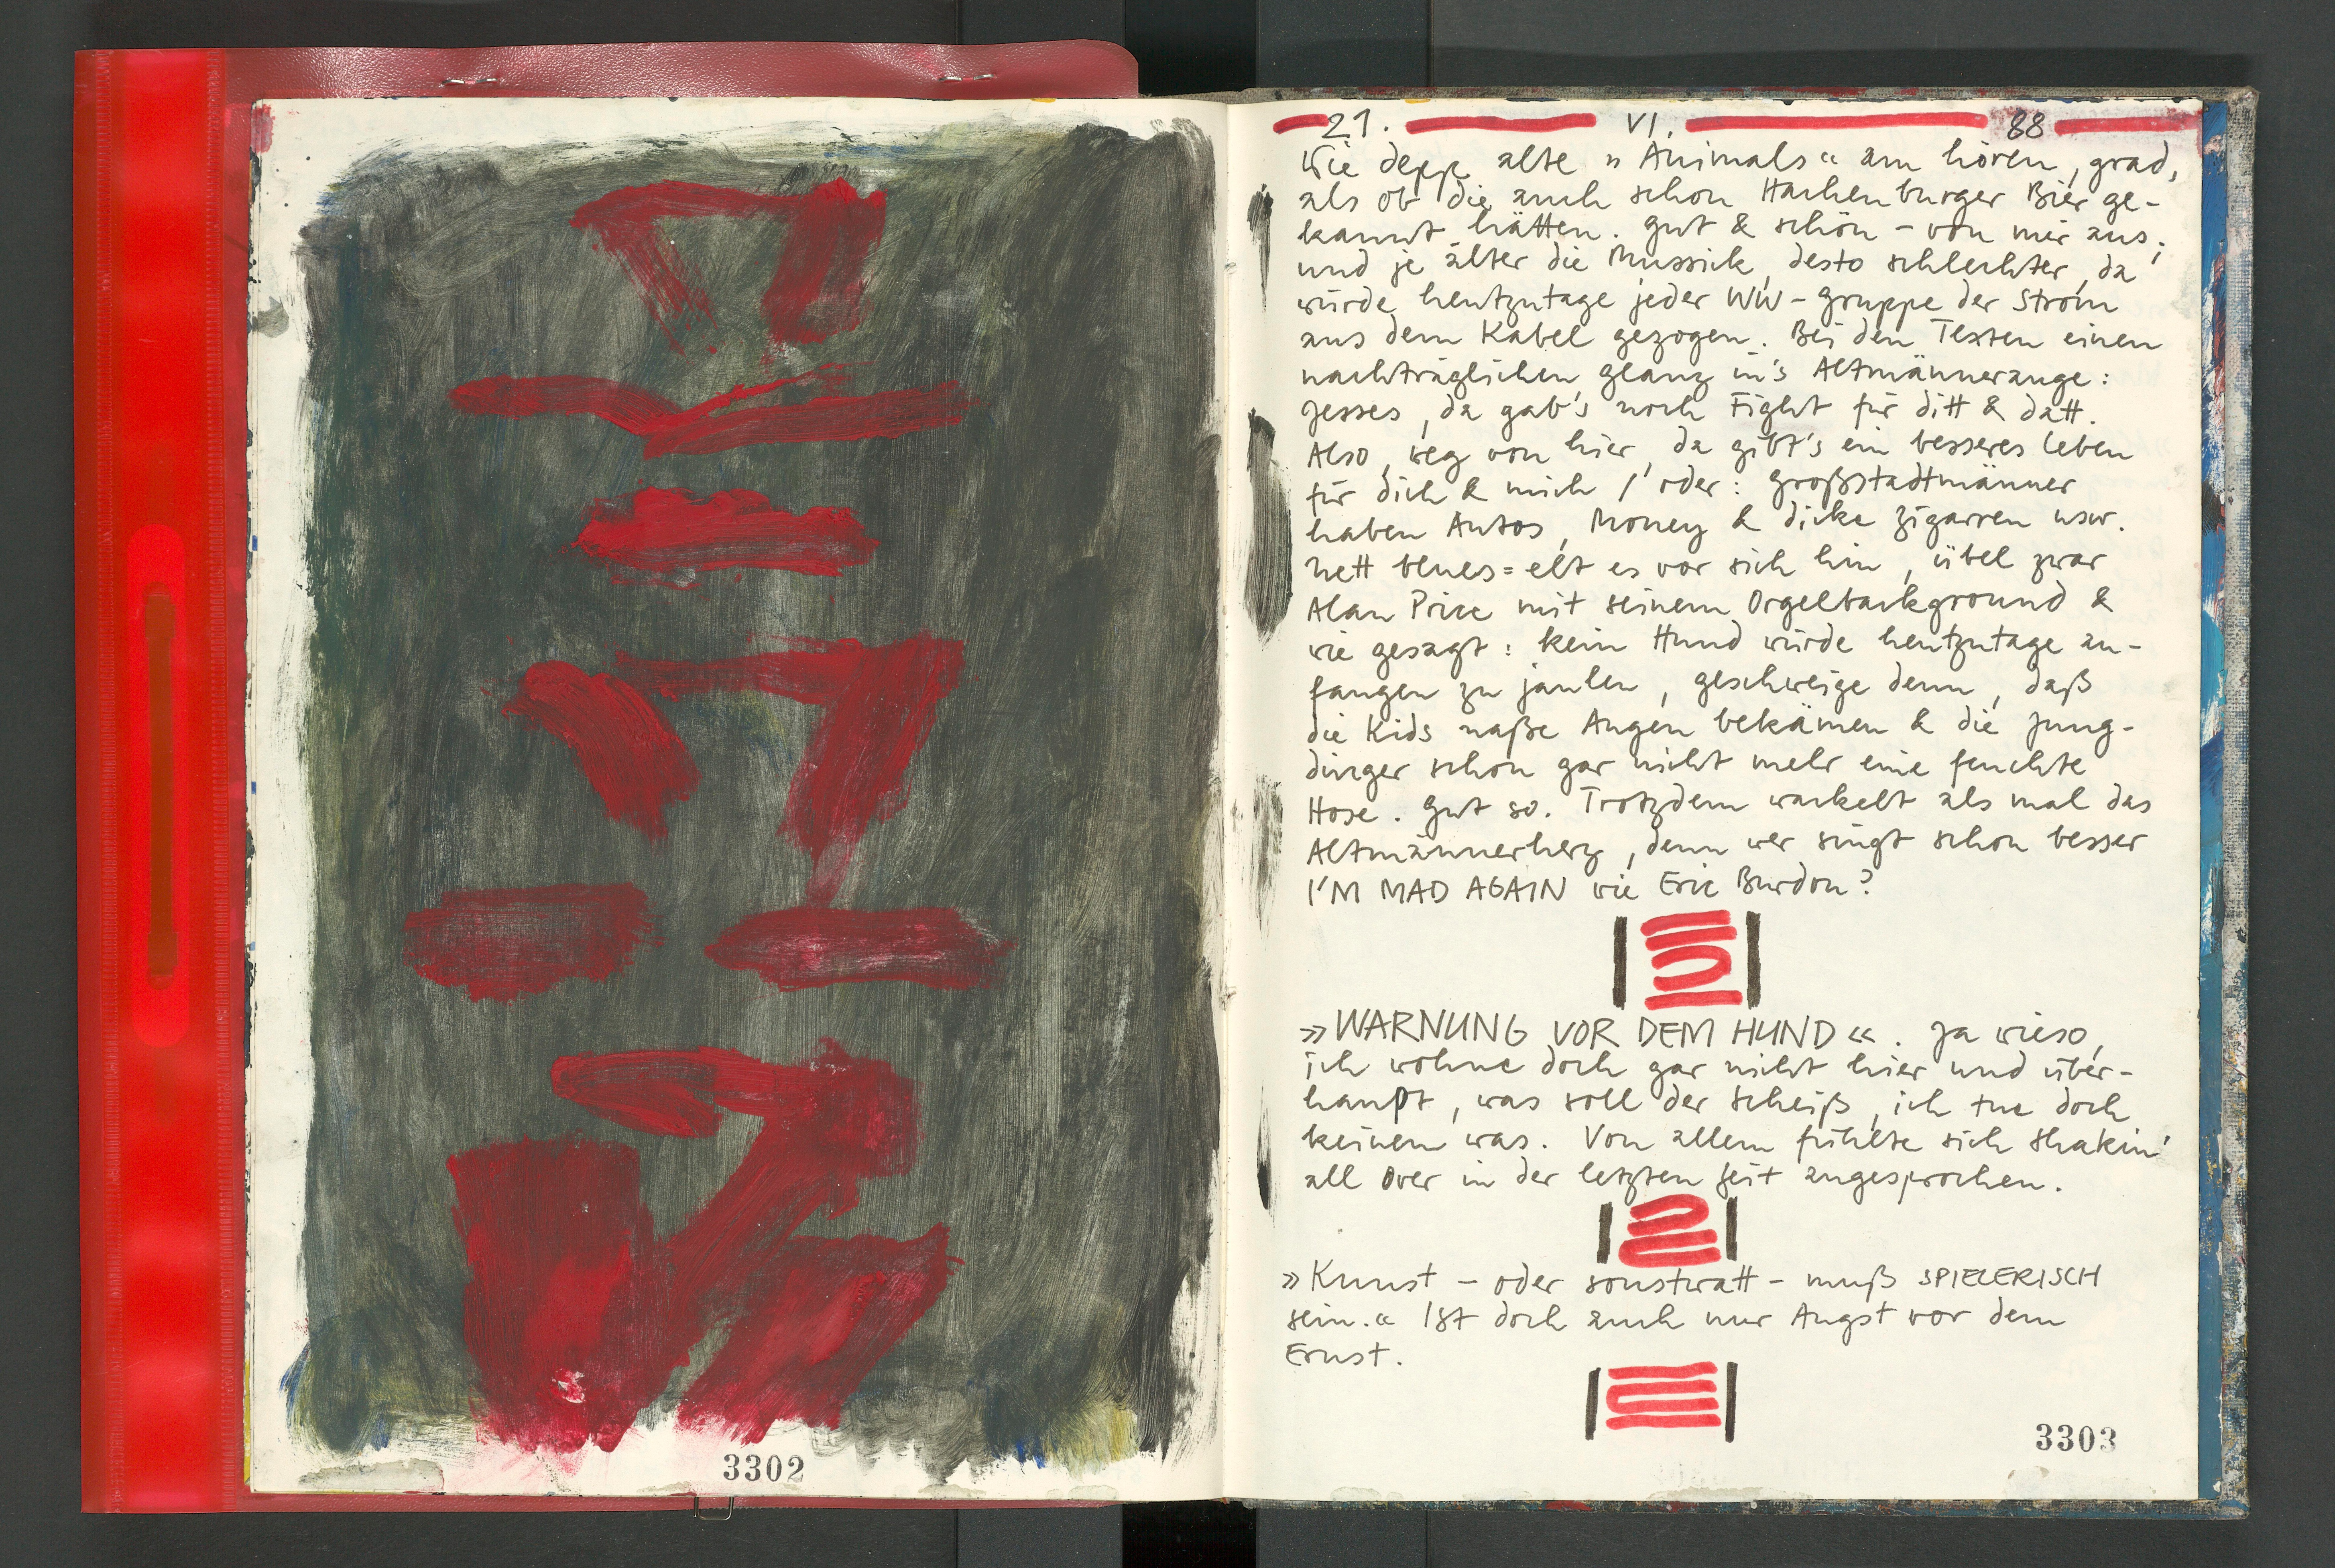 3302
21. VI. 88
Wie depp alte »Animals« am hören, grad,
als ob die auch schon Hachenburger Bier ge-
kannt hätten. Gut & schön – von mir aus;
und je älter die Mussick, desto schlechter, da
würde heutzutage jeder WW-Gruppe der Strom
aus dem Kabel gezogen. Bei den Texten einen
nachträglichen Glanz in's Altmännerauge:
Jesses, da gab's noch Fight für ditt & datt.
Also, weg von hier, da gibt's ein besseres Leben
für dich & mich / oder: Großstadtmänner
haben Autos, Money & dicke Zigarren usw.
Nett blues=elt es vor sich hin, übel zwar
Alan Price mit seinem Orgelbackground &
wie gesagt: kein Hund würde heutzutage an-
fangen zu jaulen, geschweige denn, daß
die Kids naße Augen bekämen & die Jung-
dinger schon gar nicht mehr eine feuchte
Hose. Gut so. Trotzdem wackelt als mal das
Altmännerherz, denn wer singt schon besser
I'M MAD AGAIN wie Eric Burdon?
»WARNUNG VOR DEM HUND«. Ja wieso,
ich wohne doch gar nicht hier und über-
haupt, was soll der Scheiß, ich tue doch
keinem was. Von allem fühlte sich Shakin'
all Over in der letzten Zeit angesprochen.
»Kunst – oder sonstwatt – muß SPIELERISCH
sein.« Ist doch auch nur Angst vor dem
Ernst.
3303